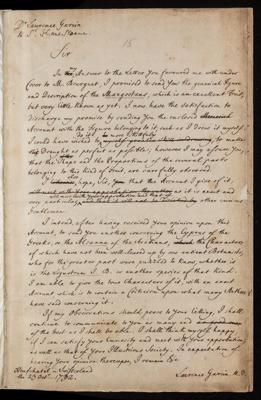 Dr Laurence Garcin
to Sr Hans Sloane.
15
Sir
In Answer to the Letter You favoured me with under
Cover to M. Bourguet, I promised to send You the general figure
and Description of the Mangostans, which is an excellent Fruit,
but very little known as yet. I now have the satisfaction to
Discharge my promise by sending You the enclosed
Account with the Figure belonging to it, such as I Drew it myself.
I could have wished to
Draught as perfect as possible; however I may assure You,
that the Shape and the Proportions of the several parts
belonging to this kind of Fruit, are carefully observed.
I hope, Sir, that the Account I give of it,
as it is exact and
very
other cunning
Gentlemen.
I intend, after having received Your opinion upon this
Account, to send You another concerning the Cyprus of the
Greeks, or the Alcanna of the Arabians, the Characters
of which have not been well cleared up by our antient Botanists,
who for the greatest part were puzzled to know, whether it
is the Ligustrum I. B. or another species of that kind.
I am able to give the true Characters of it, with an exact
Account which is to contain a Criticism upon what many Authors
have said concerning it.
If my Observations should prove to Your liking, I shall
continue to communicate to You as many and
of the best as I shall be able. I shall think myself happy
if I can satisfy Your Curiosity and meet with Your approbation,
as well as that of Your Illustrious Society. In expectation of
hearing Your opinion thereupon, I remain &c
Neufchatel in Switzerland
the 23 Octr 1732.
Laurence Garcin M.D.